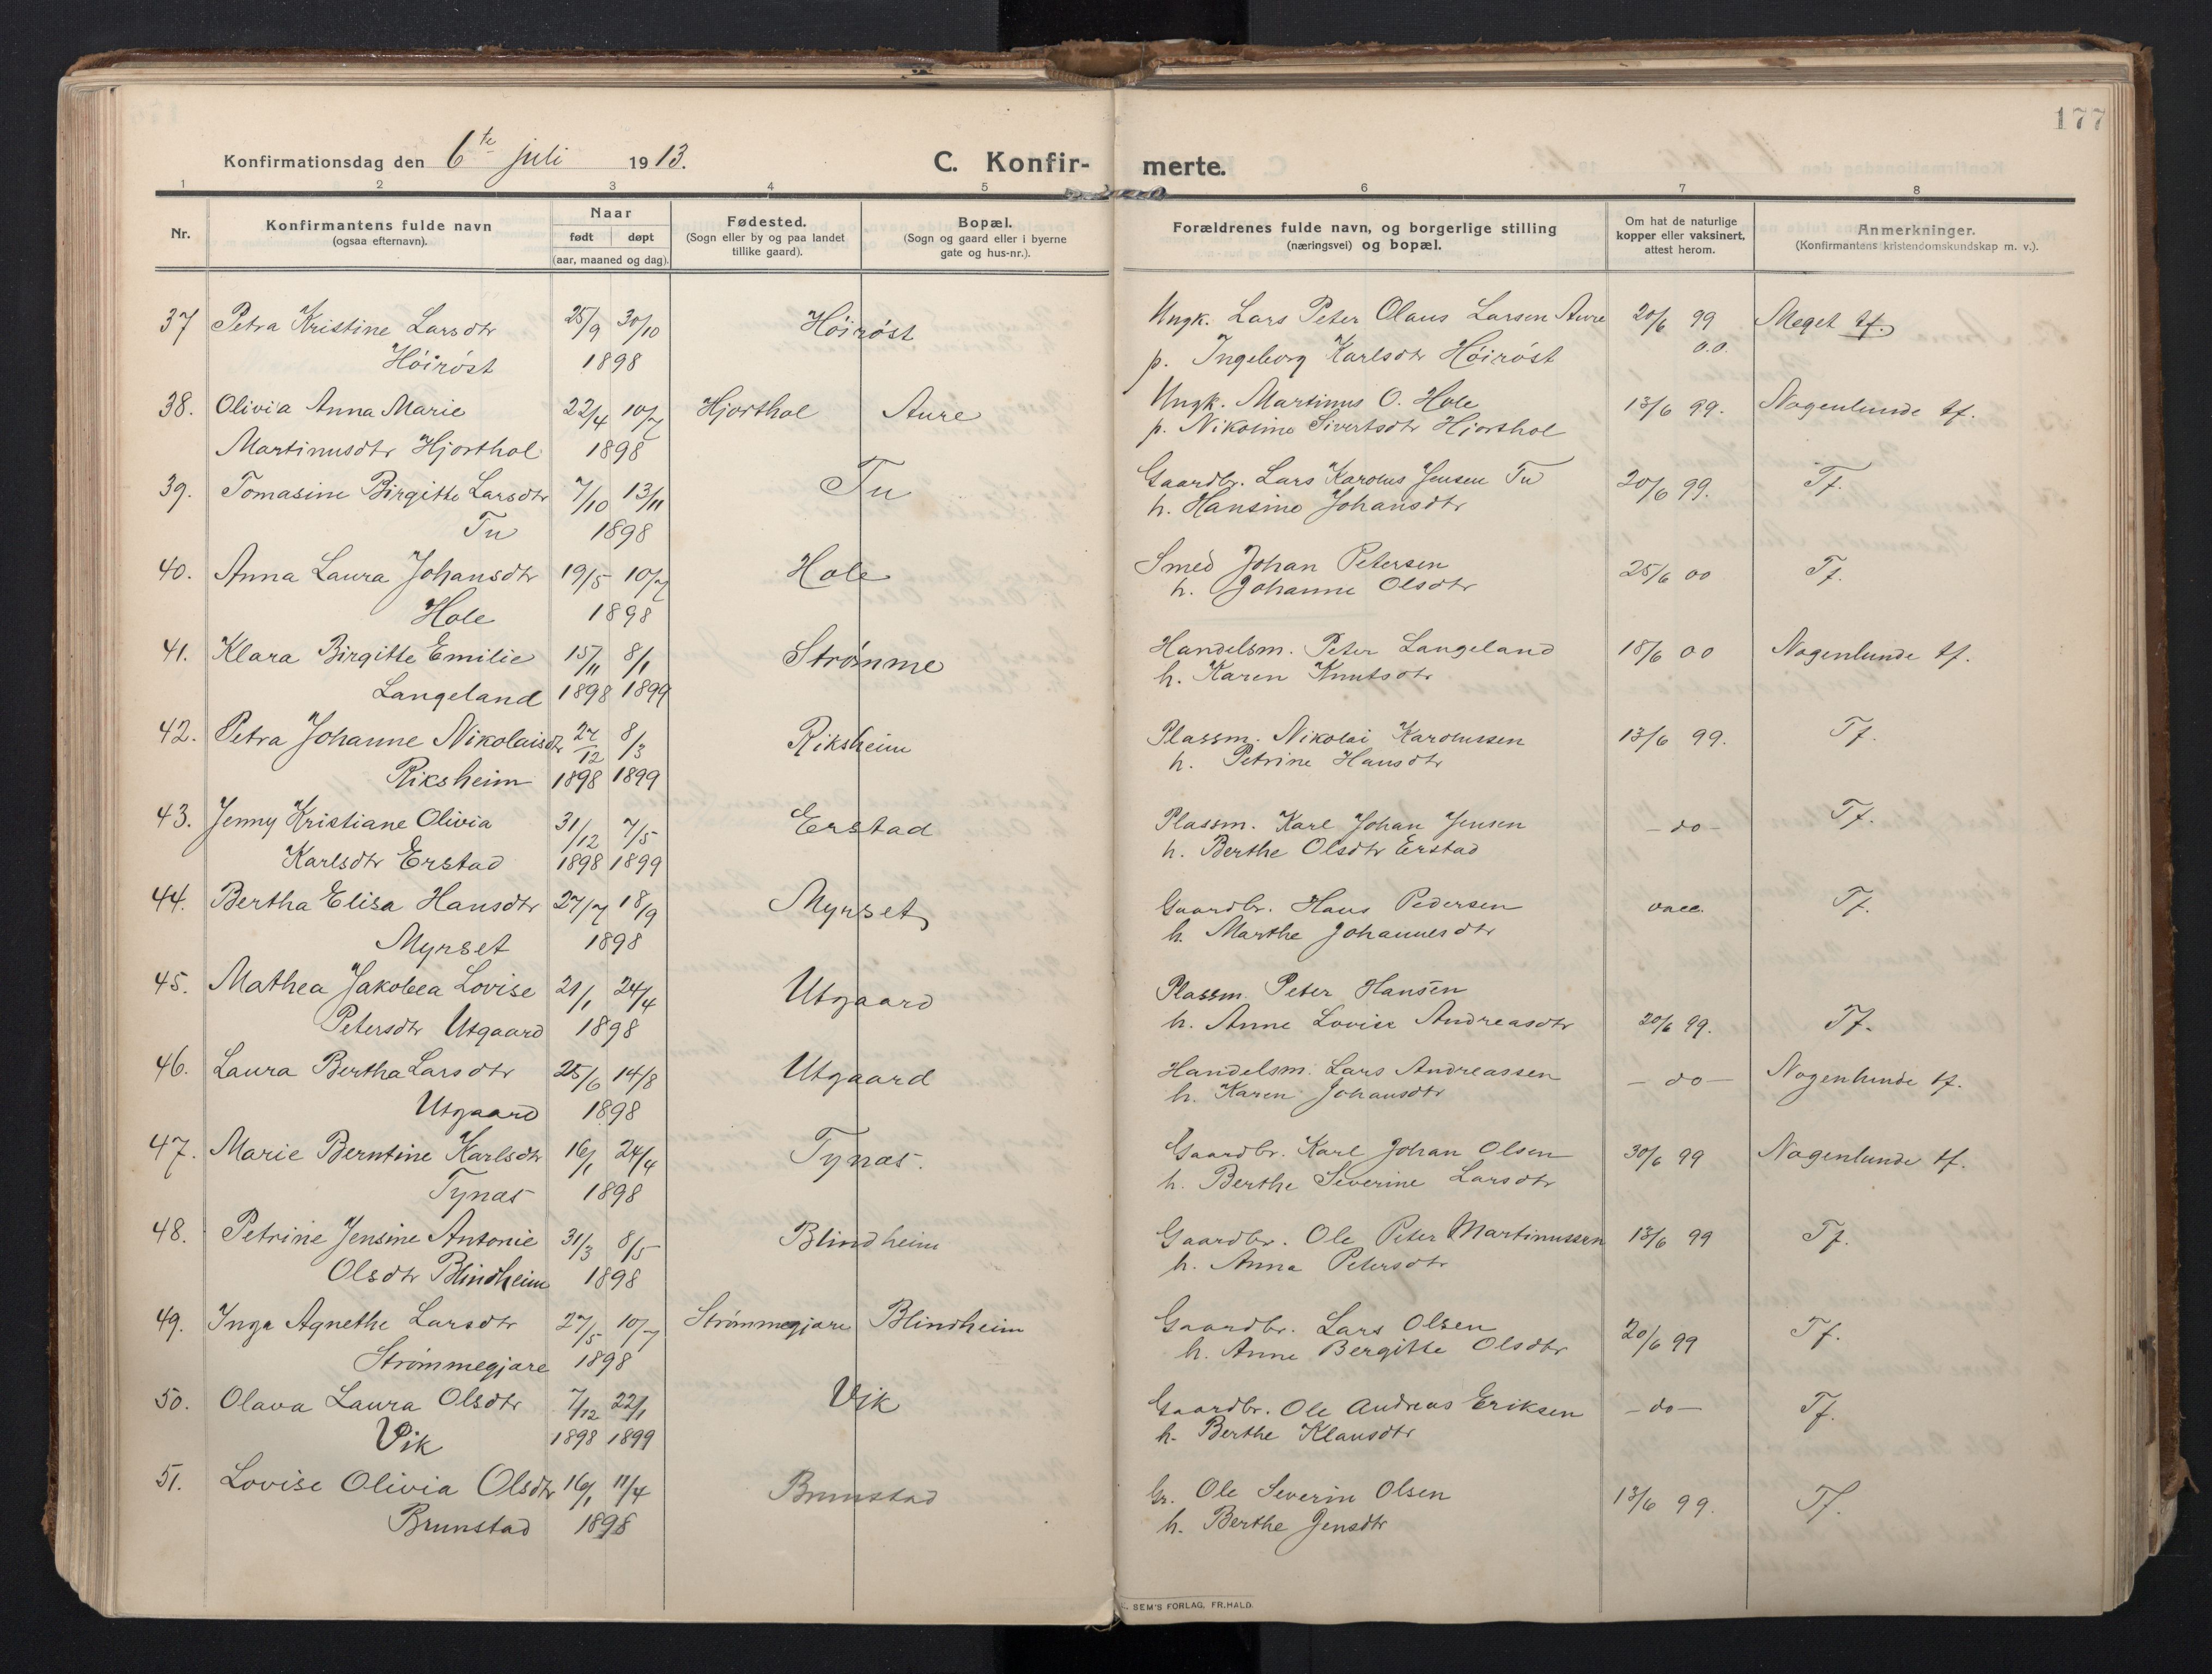 177
Konfirmationsdag den 6te juli 1913. C. Konfir- merte.
1 2 3 4 5 6 7 8
Nr.
Konfirmantens fulde navn
(ogsaa efternavn).
Naar
født døpt
(aar, maaned og dag).
Fødested.
(Sogn eller by og paa landet
tillike gaard).
Bopæl.
(Sogn og gaard eller i byerne
gate og hus-nr.).
Forældrenes fulde navn, og borgerlige stilling
(næringsvei) og bopæl.
Om hat de naturlige
kopper eller vaksinert,
attest herom.
Anmerkninger.
(Konfirmantens kristendomskundskap m. v.).
37 Petra Kristine Larsdtr 25/9 30/10 Höiröst Ungk. Lars Peter Olaus Larsen Aure 20/6 99 Meget tf.
Höiröst 1898 p. Ingeborg Karlsdtr Höiröst o.o.
38. Olivia Anna Marie 22/4 10/7 Hjorthol Aure Ungk. Martinus O. Hole 13/6 99. Nogenlunde tf.
Martinusdtr Hjorthol 1898 p. Nikoline Sivertsdtr Hjorthol
39. Tomasine Birgitte Larsdtr 7/10 13/11 Tu Gaardbr. Lars Karolus Jensen Tu 20/6 99. Tf.
Tu 1898 h. Hansine Johansdtr
40. Anna Laura Johansdtr 19/5 10/7 Hole Smed Johan Petersen 25/6 00 Tf.
Hole 1898 h. Johanne Olsdtr
41. Klara Birgitte Emilie 15/11 8/1 Strømme Handelsm. Peter Langeland 18/6 00 Nogenlunde tf.
Langeland 1898 1899 h. Karen Knutsdtr
42. Petra Johanne Nikolaisdtr 27/12 8/3 Riksheim Plassm. Nikolai Karolussen 13/6 99. Tf.
Riksheim 1898 1899 h. Petrine Hansdtr
43. Jenny Kristiane Olivia 31/12 7/5 Erstad Plassm. Karl Johan Jensen – do – Tf.
Karlsdtr Erstad 1898 1899 h. Berthe Olsdtr Erstad
44. Bertha Elisa Hansdtr 27/7 18/9 Myrset Gaardbr. Hans Pedersen vacc. Tf.
Myrset 1898 h. Marthe Johannesdtr
45. Mathea Jakobea Lovise 21/1 24/4 Utgaard Plassm. Peter Hansen
Petersdtr Utgaard 1898 h. Anne Lovise Andreasdtr 20/6 99. Tf.
46. Laura Bertha Larsdtr 25/6 14/8 Utgaard Handelsm. Lars Andreassen – do – Nogenlunde tf.
Utgaard 1898 h. Karen Johansdtr
47. Marie Berntine Karlsdtr 16/1 24/4 Tynæs. Gaardbr. Karl Johan Olsen 30/6 99 Nogenlunde tf.
Tynæs 1898 h. Berthe Severine Larsdtr
48. Petrine Jensine Antonie 31/3 8/5 Blindheim Gaardbr. Ole Peter Martinussen 13/6 99 Tf.
Olsdtr Blindheim 1898 h. Anna Petersdtr
49. Inga Agnethe Larsdtr 27/5 10/7 Strømmegjære Blindheim Gaardbr. Lars Olsen 20/6 99 Tf.
Strømmegjære 1898 h. Anne Bergitte Olsdtr
50. Olava Laura Olsdtr 7/12 22/1 Vik Gaardbr. Ole Andreas Eriksen – do – Tf.
Vik 1898 1899 h. Berthe Klausdtr
51. Lovise Olivia Olsdtr 16/1 11/4 Brunstad Gr. Ole Severin Olsen 13/6 99. Tf.
Brunstad 1898 h. Berthe Jensdtr
SEM'S FORLAG, FR.HALD.